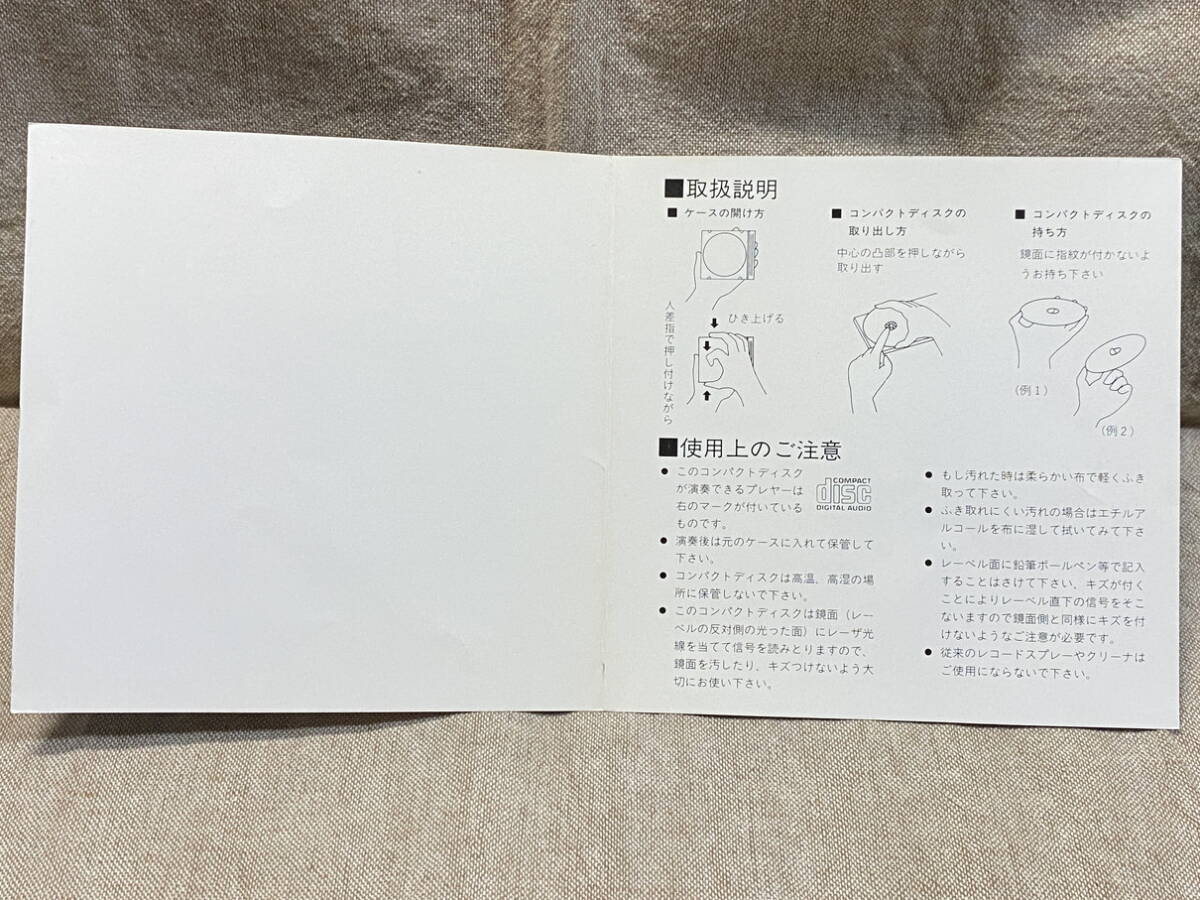 ■取扱説明
■ ケースの開け方
人差指で押し付けながら
ひき上げる
■ コンパクトディスクの
取り出し方
中心の凸部を押しながら
取り出す
■ コンパクトディスクの
持ち方
鏡面に指紋が付かないよ
うお持ち下さい
(例1)
(例2)
■使用上のご注意
● このコンパクトディスク
が演奏できるプレヤーは
右のマークが付いている
ものです。
COMPACT
disc
DIGITAL AUDIO
● 演奏後は元のケースに入れて保管して
下さい。
● コンパクトディスクは高温、高湿の場
所に保管しないで下さい。
● このコンパクトディスクは鏡面(レー
ベルの反対側の光った面)にレーザ光
線を当てて信号を読みとりますので、
鏡面を汚したり、キズつけないよう大
切にお使い下さい。
● もし汚れた時は柔らかい布で軽くふき
取って下さい。
● ふき取れにくい汚れの場合はエチルア
ルコールを布に湿して拭いてみて下さ
い。
● レーベル面に鉛筆ボールペン等で記入
することはさけて下さい、キズが付く
ことによりレーベル直下の信号をそこ
ないますので鏡面側と同様にキズを付
けないようなご注意が必要です。
● 従来のレコードスプレーやクリーナは
ご使用にならないで下さい。